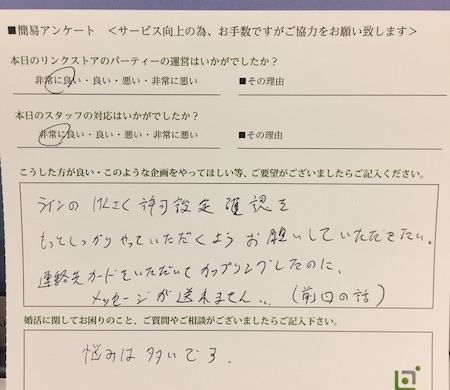 ■簡易アンケート ＜サービス向上の為、お手数ですがご協力をお願い致します＞
本日のリンクストアのパーティーの運営はいかがでしたか？
非常に良い・良い・悪い・非常に悪い ■その理由
本日のスタッフの対応はいかがでしたか？
非常に良い・良い・悪い・非常に悪い ■その理由
こうした方が良い・このような企画をやってほしい等、ご要望がございましたらご記入ください。
ラインの けんさく 許可設定 確認を
もっとしっかりやっていただくよう お願いしていただきたい。
連絡先カードをいただいてカップリングしたのに、
メッセージが送れません... (前回の話)
婚活に関してお困りのこと、ご質問やご相談がございましたらご記入下さい。
悩みは多いです.